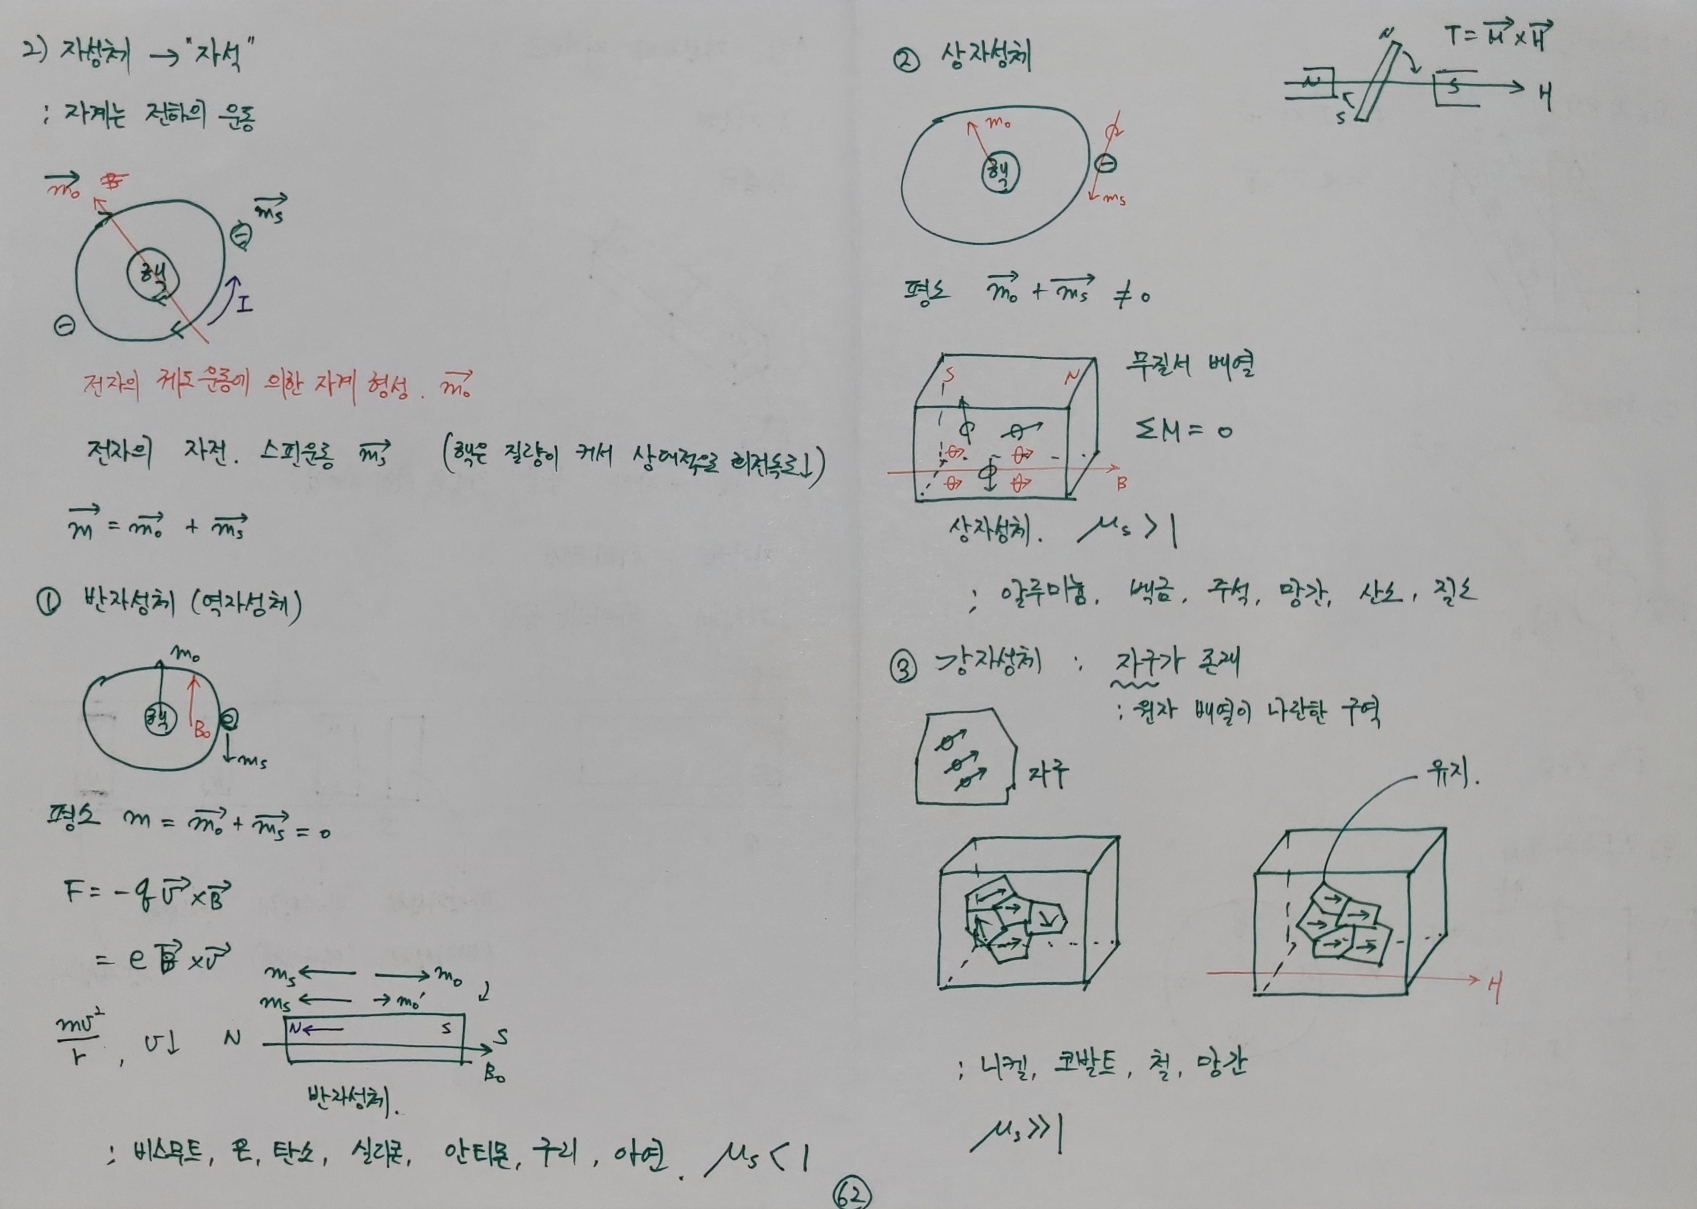 2) 자성체 → "자석"
; 자계는 전하의 운동
m₀
mₛ
⊖
핵
I
⊖
전자의 궤도운동에 의한 자계 형성. m₀
전자의 자전. 스핀운동 mₛ (핵은 질량이 커서 상대적으로 회전속도↓)
m = m₀ + mₛ
① 반자성체 (역자성체)
m₀
핵
B₀
⊖
mₛ
평소 m = m₀ + mₛ = 0
F = -q v × B
= e B × v
mₛ ← → m₀
mₛ ← → m₀'
mv²/r , v↓
N
N ← S
S
B₀
반자성체.
; 비스무트, 은, 탄소, 실리콘, 안티몬, 구리, 아연. μₛ < 1
② 상자성체
T = M × H
N
N
S
S
H
m₀
핵
⊖
mₛ
평소 m₀ + mₛ ≠ 0
S
N
B
무질서 배열
ΣM = 0
상자성체. μₛ > 1
; 알루미늄, 백금, 주석, 망간, 산소, 질소
③ 강자성체 : 자구가 존재
; 원자 배열이 나란한 구역
자구
유지.
H
; 니켈, 코발트, 철, 망간
μₛ ≫ 1
62